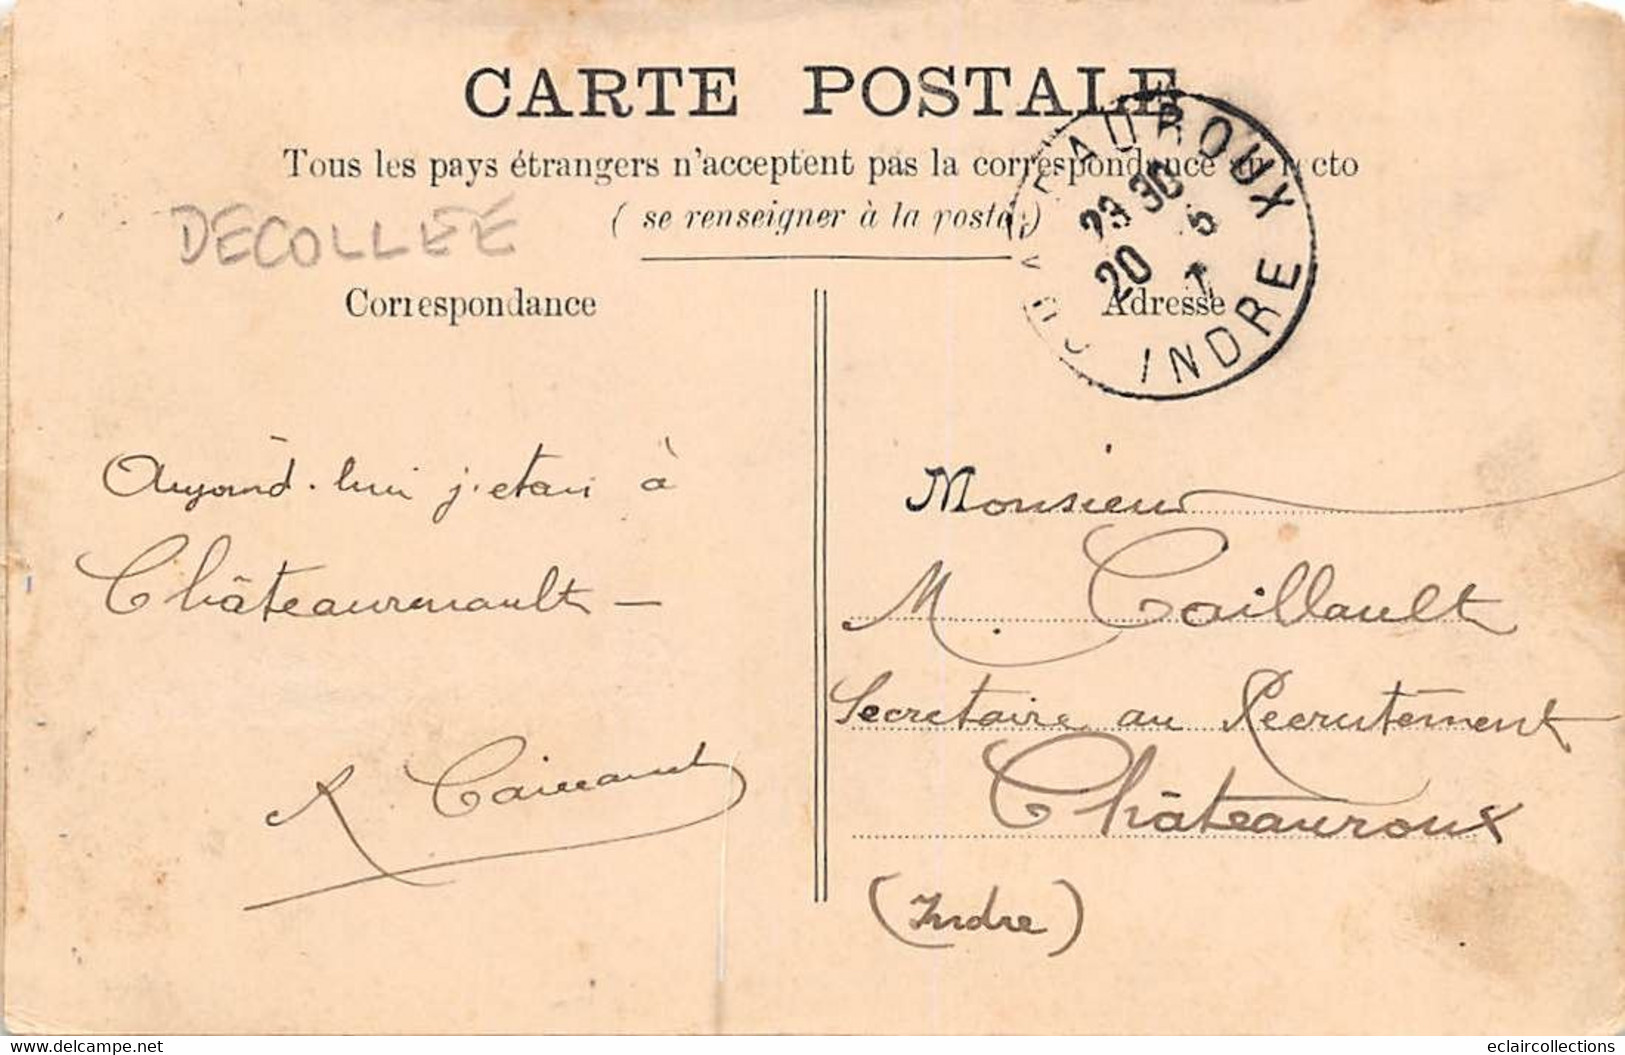 CARTE POSTALE
Tous les pays étrangers n'acceptent pas la correspondance au recto
( se renseigner à la poste )
DECOLLEE
CHATEAUROUX
23 30
20 5
7
INDRE
Correspondance
Adresse
Aujourd'hui j'étais à
Châteaurenault —
Monsieur
M. Caillault
Secrétaire au Recrutement
Châteauroux
(Indre)
delcampe.net
eclaircollections